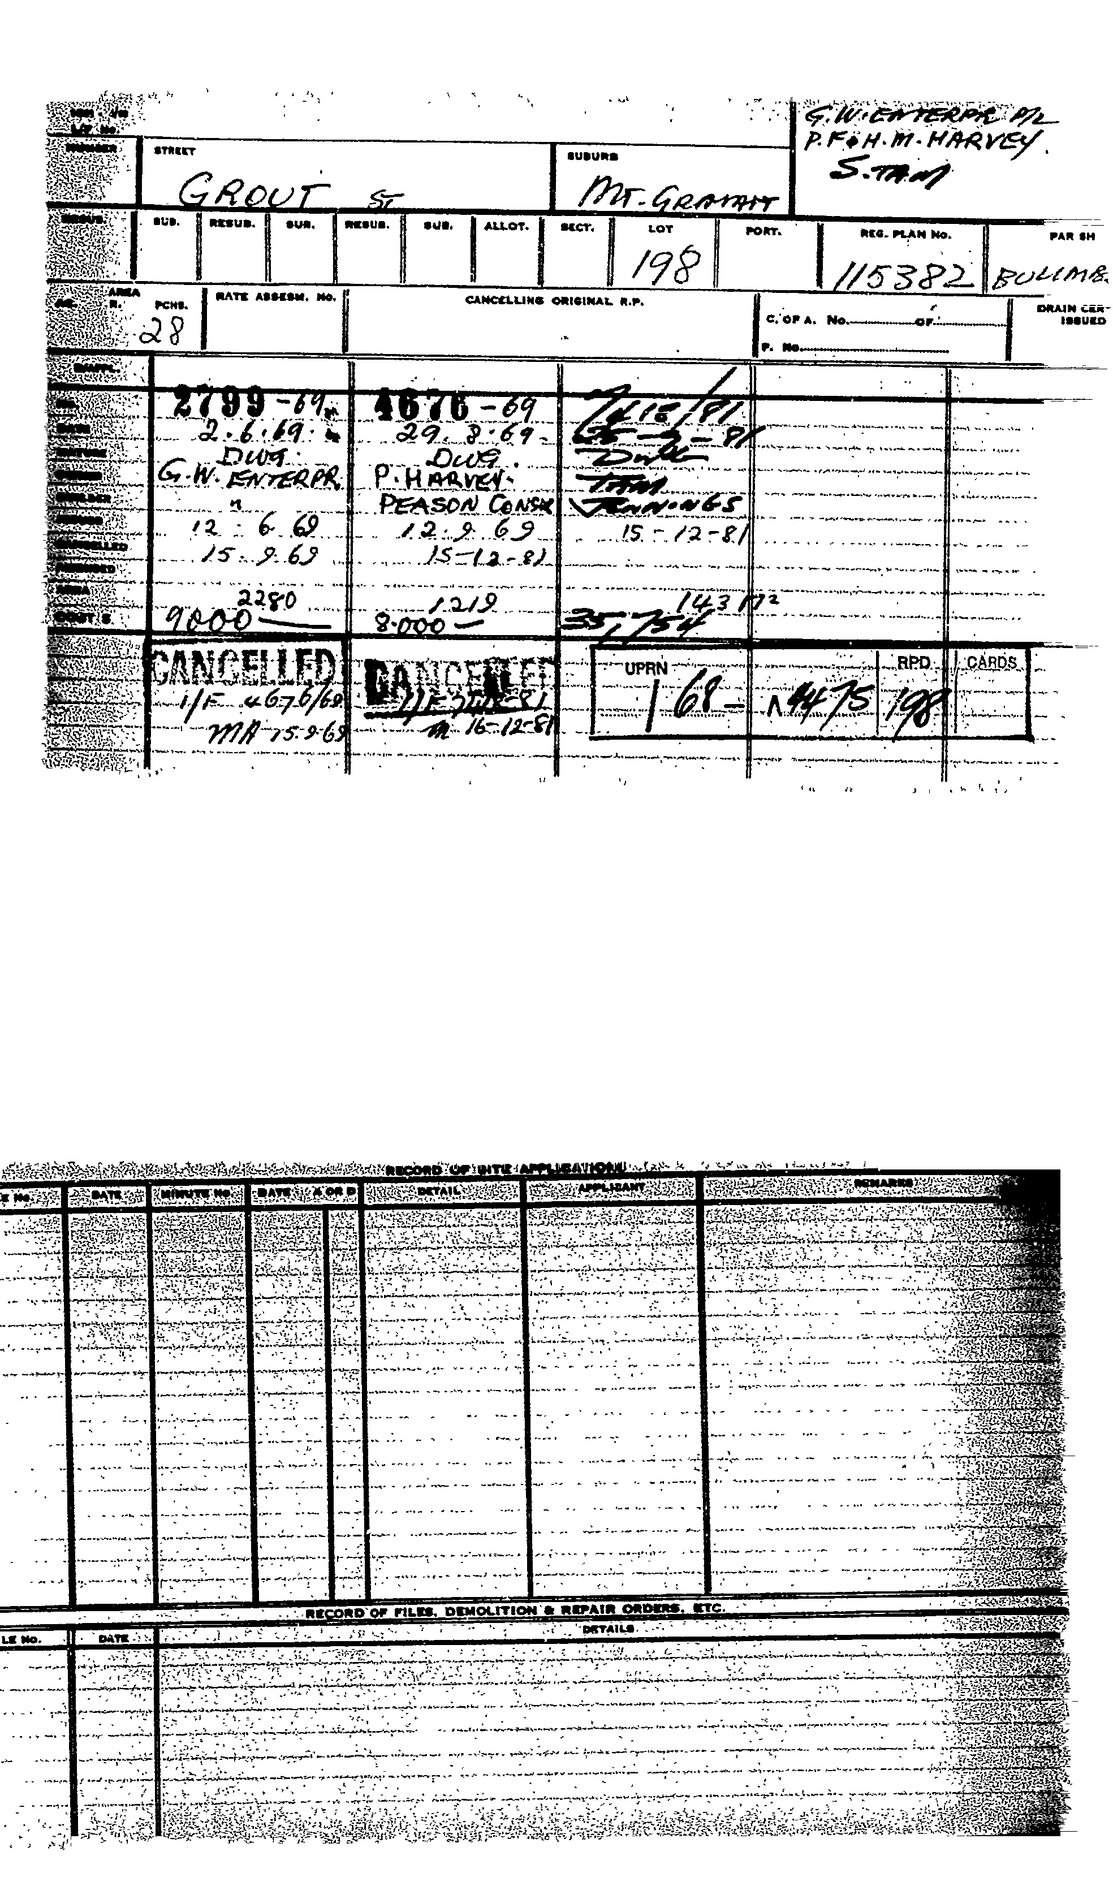 G.W. ENTERPR P/L
P.F & H.M. HARVEY.
S. TAM
NUMBER STREET SUBURB
GROUT ST MT. GRAVATT
RESUB. SUB. RESUB. SUB. RESUB. SUB. ALLOT. SECT. LOT PORT. REG. PLAN No. PAR SH
198 115382 BULIMB.
AREA
R. PCHS. RATE ASSESM. No. CANCELLING ORIGINAL R.P. C. OF A. No. OF DRAIN CER-
ISSUED
28 P. No.
2799-69 4676-69
DATE 2.6.69. 29.8.69.
NATURE DWG. DWG.
OWNER G.W. ENTERPR. P. HARVEY. TAM
BUILDER " PEASON CONSR JENNINGS
12.6.69 12.9.69 15-12-81
CANCELLED 15.9.69 15-12-81
AREA 2280 1219 143 M²
COST $ 9000— 8.000— 35,754
CANCELLED CANCELLED UPRN RPD CARDS
I/F 4676/69 168- 198
MA 15.9.69 16-12-81
RECORD OF SITE APPLICATIONS
E No. DATE MINUTE No. DATE A OR D DETAIL APPLICANT REMARKS
RECORD OF FILES, DEMOLITION & REPAIR ORDERS, ETC.
LE No. DATE DETAILS